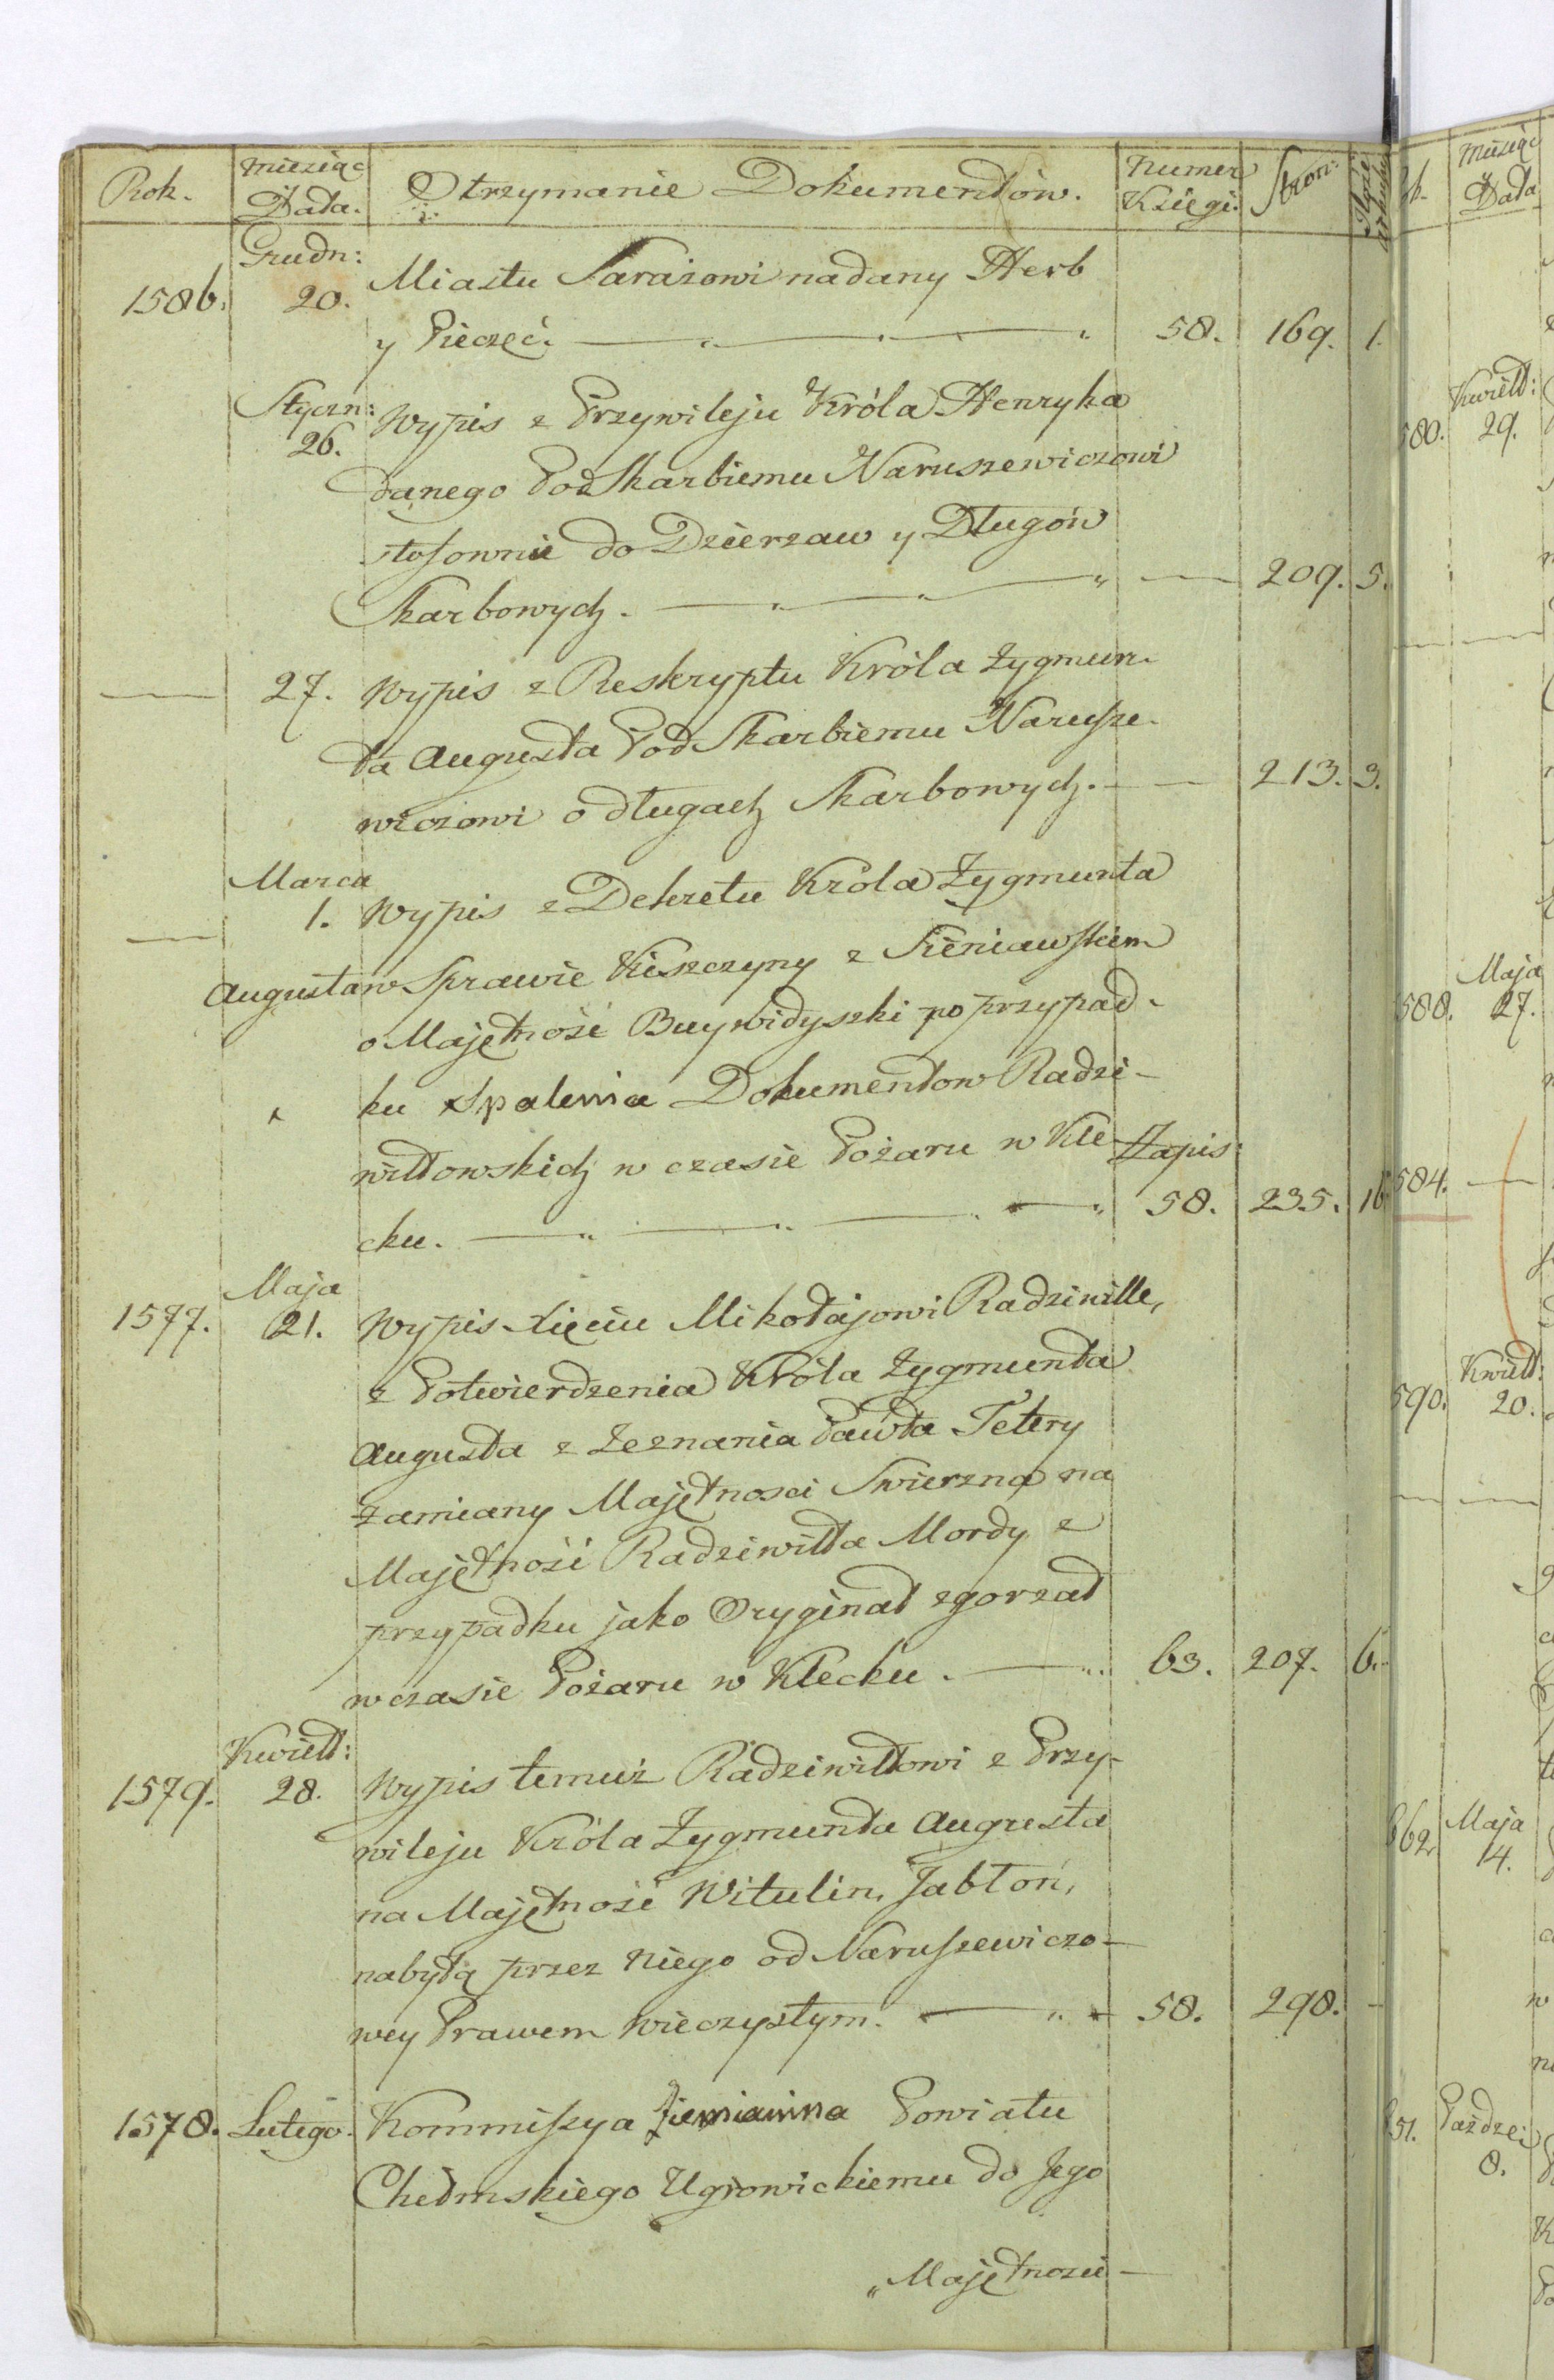 Rok. Miesiąc Data. Otrzymanie Dokumentów. Numer Księgi. Stron:
Grudn:
1586. 20. Miastu Surażowi nadany Herb
y Pieczęć. 58. 169. 1.
Styczn: 26. Wypis z Przywileju Króla Henryka
danego Podskarbiemu Naruszewiczowi
stosownie do Dzierzaw y Długów
Skarbowych. 209. 5.
27. Wypis z Reskryptu Króla Zygmun-
ta Augusta Podskarbiemu Narusze-
wiczowi o długach Skarbowych. 213. 3.
Marca
1. Wypis z Dekretu Króla Zygmunta
Augusta w Sprawie Kiszczyny z Sieniawskim
o Majętność Buywidyszki po przypad-
ku spalenia Dokumentow Radzi-
wiłłowskich w czasie Pożaru w Kle- Zapis:
cku. 58. 235. 16.
Maja
1577. 21. Wypis Xięciu Mikołajowi Radziwille,
z Potwierdzenia Króla Zygmunta
Augusta z Zeznania Pawła Tetery
zamiany Majętnosci Swierzna na
Majętność Radziwiłła Mordy z
przypadku jako Oryginał zgorzał
w czasie Pożaru w Klecku. 63. 207. 6.
Kwiet:
1579. 28. Wypis temuż Radziwiłłowi z Przy-
wileju Króla Zygmunta Augusta
na Majętność Witulin, Jabłoń,
nabytą przez niego od Naruszewiczo-
wey Prawem wieczystym. 58. 298.
1578. Lutego. Kommissya Ziemianina Powiatu
Chełmskiego Ugrowickiemu do Jego
„Majętności-
Miesiąc Data
580. Kwiet: 29.
588. Maja 27.
584.
590. Kwiet: 20.
Maja 14.
Paźdze: 8.